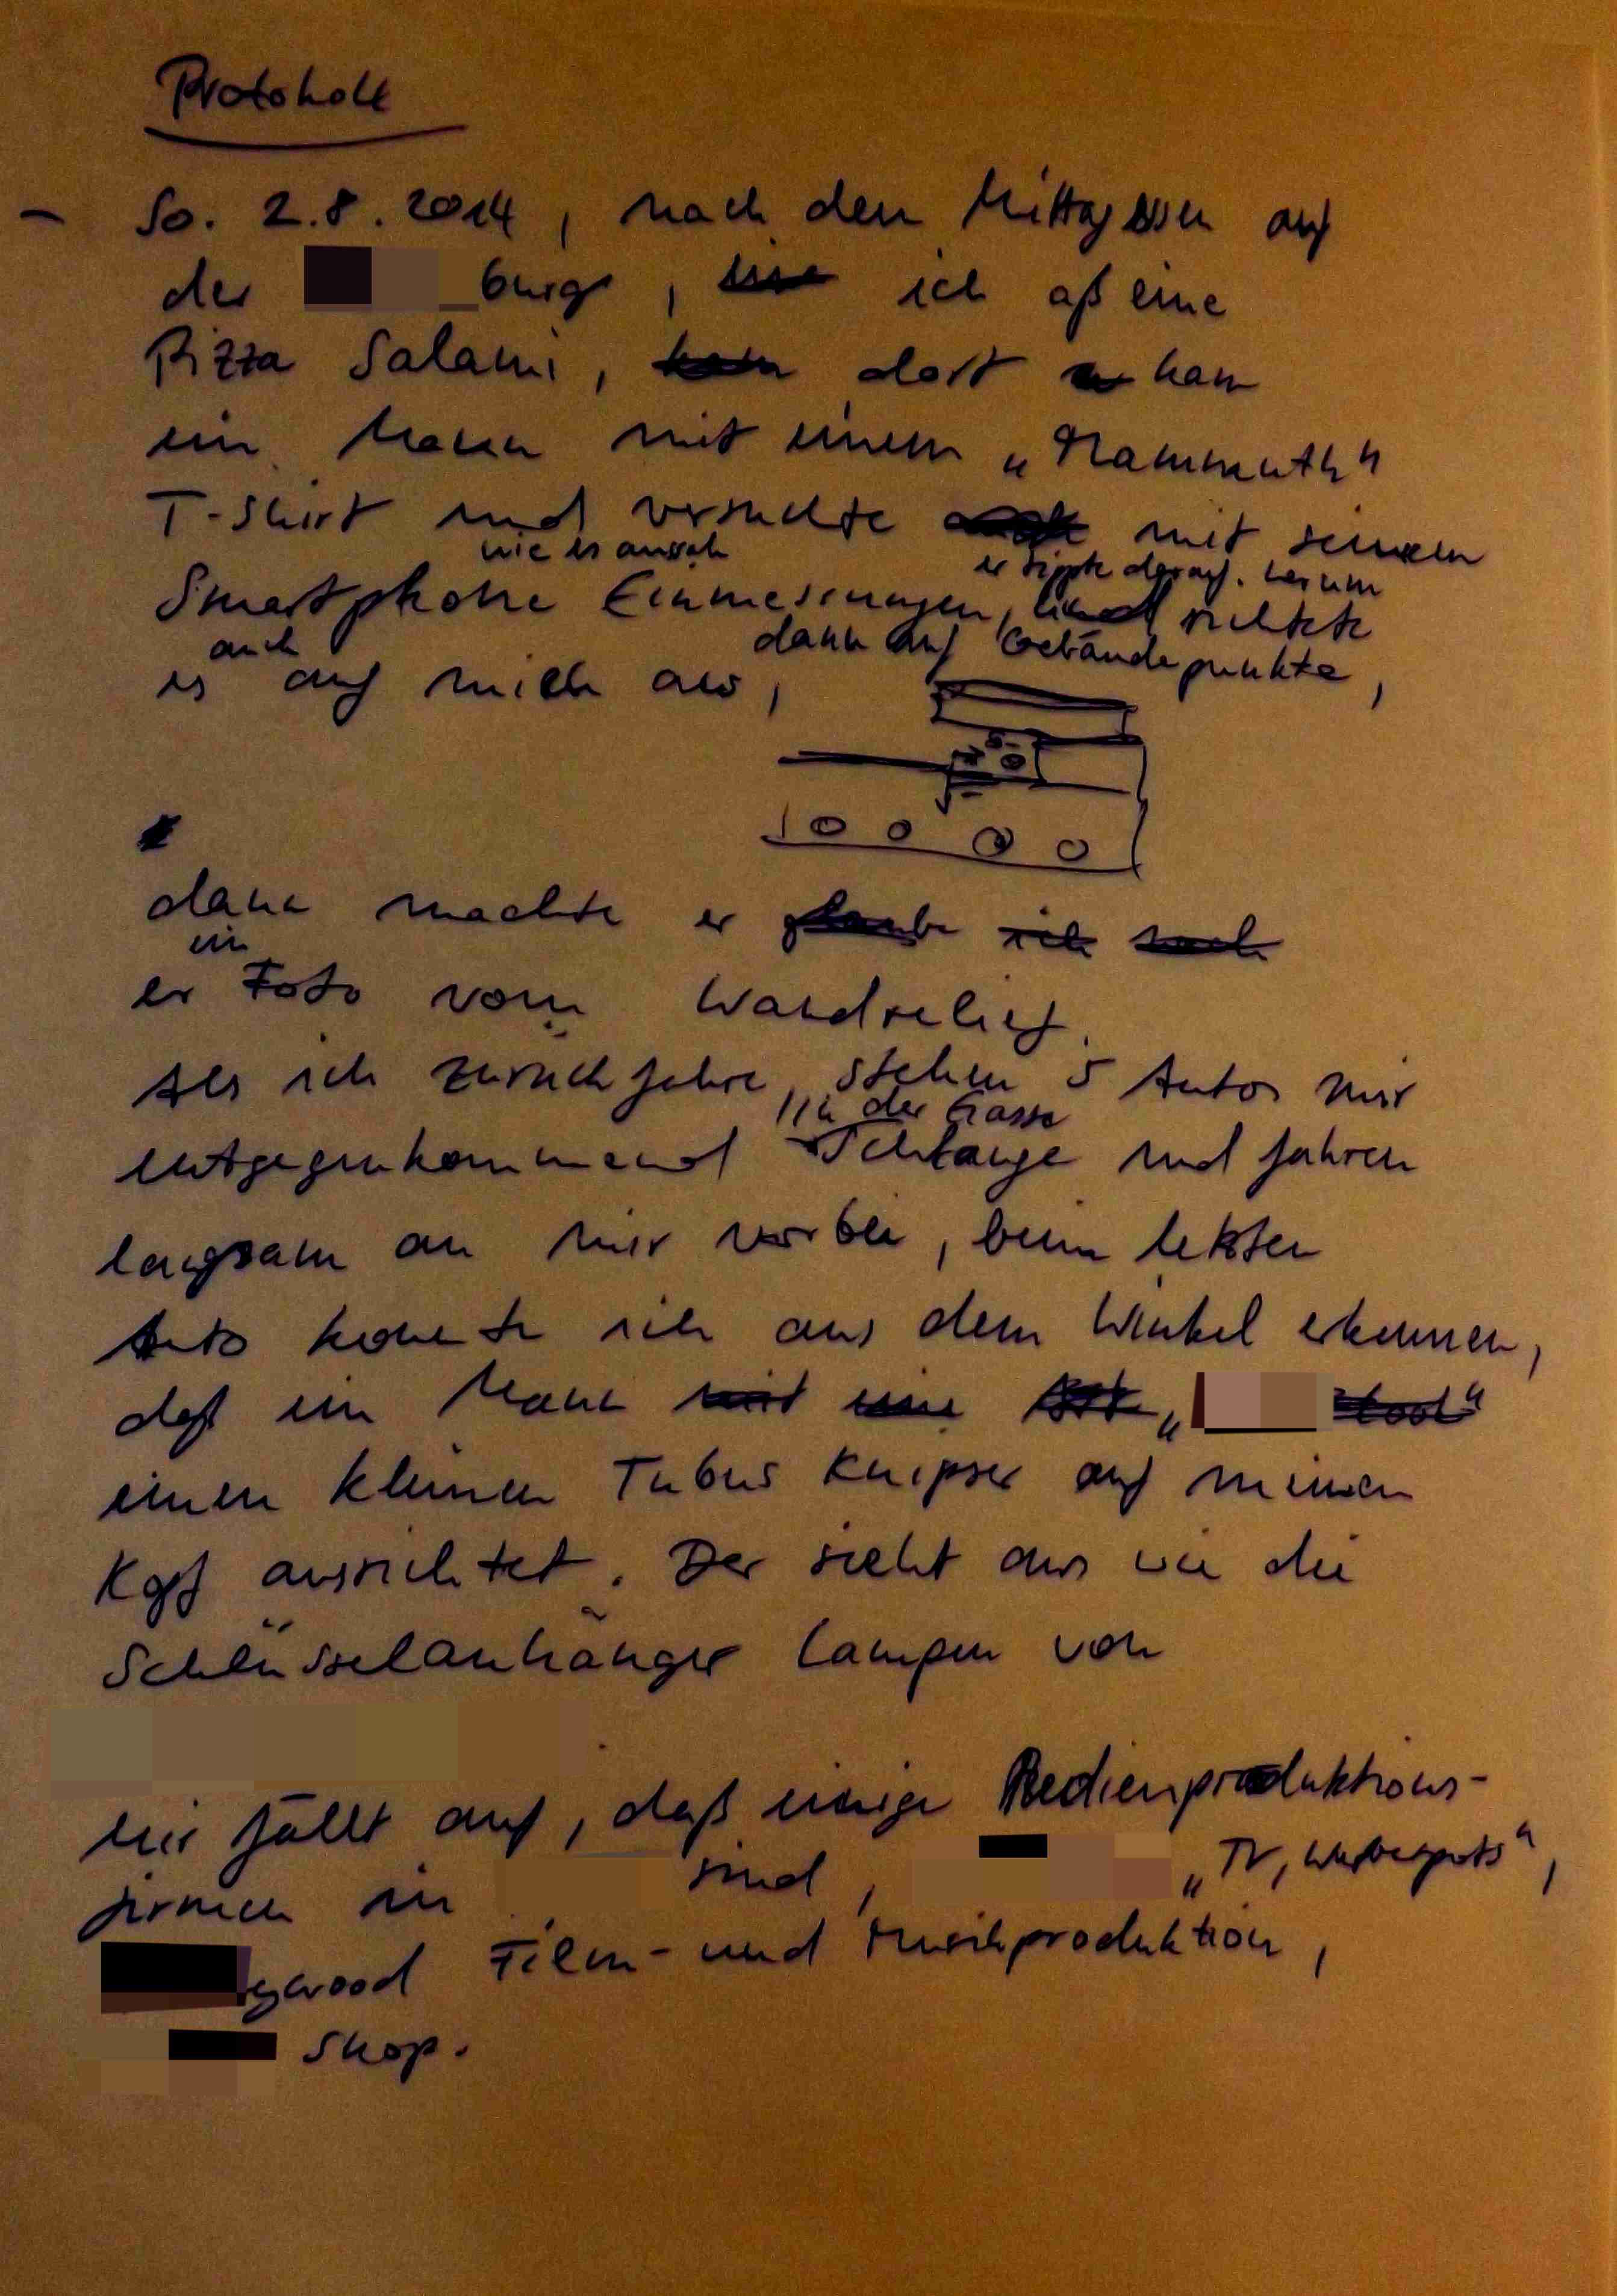 Protokoll
- So. 2.8.2014, nach dem Mittagessen auf
der burg, ich aß eine
Pizza Salami, dort kam
ein Mann mit einem „Mammuth"
T-Shirt und versuchte mit seinem
wie es aussah er tippte darauf herum
Smartphone Einmessungen, und richtete
auch dann auf Geländepunkte,
es auf mich aus,
dann machte er glaube ich noch
ein
er Foto vom Wandrelief.
Als ich zurückfahre, stehen 5 Autos mir
in der Gasse
entgegenkommend Schlange und fahren
langsam an mir vorbei, beim letzten
Auto konnte ich aus dem Winkel erkennen,
daß ein Mann mit eine „
einen kleinen Tubus Knipser auf meinen
Kopf ausrichtet. Der sieht aus wie die
Schlüsselanhänger Lampen von
Mir fällt auf, daß einige Medienproduktions-
firmen in sind, „TV, Werbespots",
gwood Film- und Musikproduktion,
Shop.